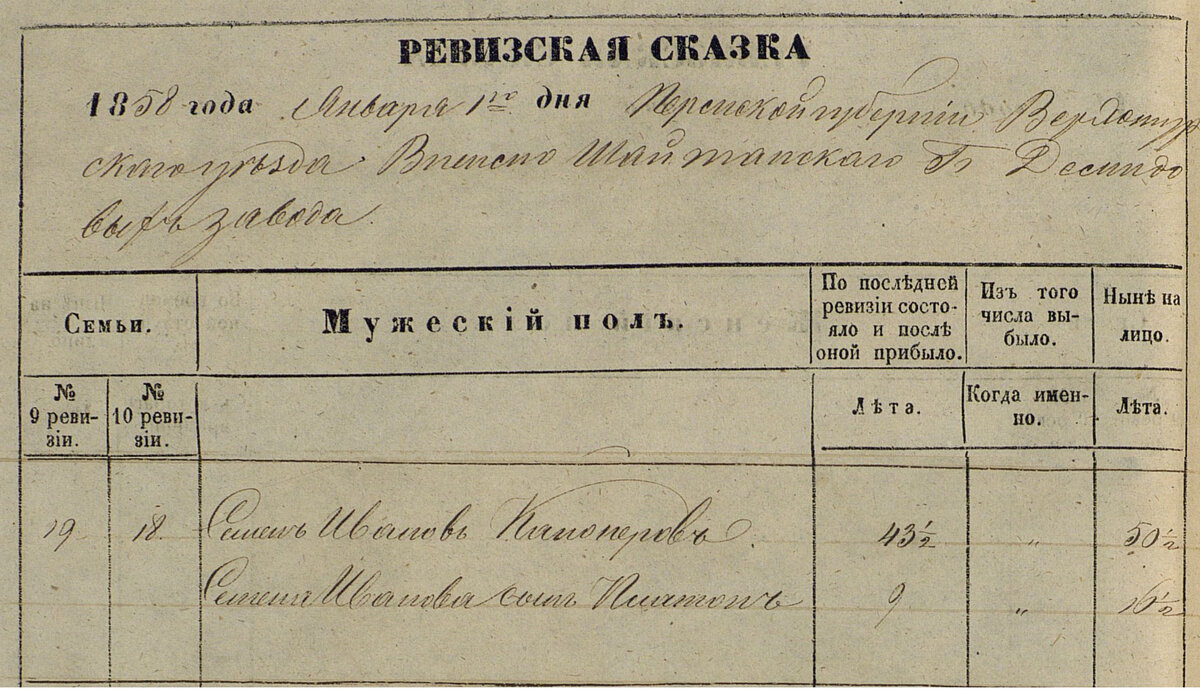 РЕВИЗСКАЯ СКАЗКА
1858 года Января 1го дня Пермской губерніи Верхотур
скаго уѣзда Висимо Шайтанскаго Гг Демидо
выхъ завода.
Семьи.
Мужескій полъ.
По послѣдней
ревизіи состо-
яло и послѣ
оной прибыло.
Изъ того
числа вы-
было.
Нынѣ на
лицо.
№
9 реви-
зіи.
№
10 реви-
зіи.
Лѣта.
Когда имен-
но.
Лѣта.
19 18 Семенъ Ивановъ Канонеровъ. 43½ „ 50½
Семена Иванова сынъ Платонъ 9 „ 16½